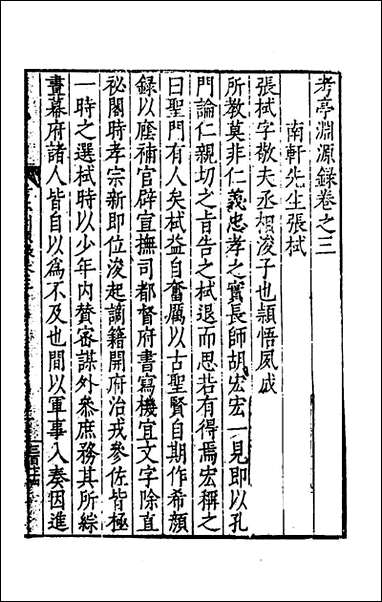 考亭淵源録卷之三
南軒先生張栻
張栻字敬夫丞相浚子也頴悟夙成
所教莫非仁義忠孝之實長師胡宏宏一見即以孔
門論仁親切之旨告之栻退而思若有得焉宏稱之
曰聖門有人矣栻益自奮厲以古聖賢自期作希顔
録以䕃補官辟宣撫司都督府書寫機宜文字除直
祕閣時孝宗新即位浚起謫籍開府治戎叅佐皆極
一時之選栻時以少年内賛宻謀外叅庶務其所綜
畫幕府諸人皆自以為不及也間以軍事入奏因進